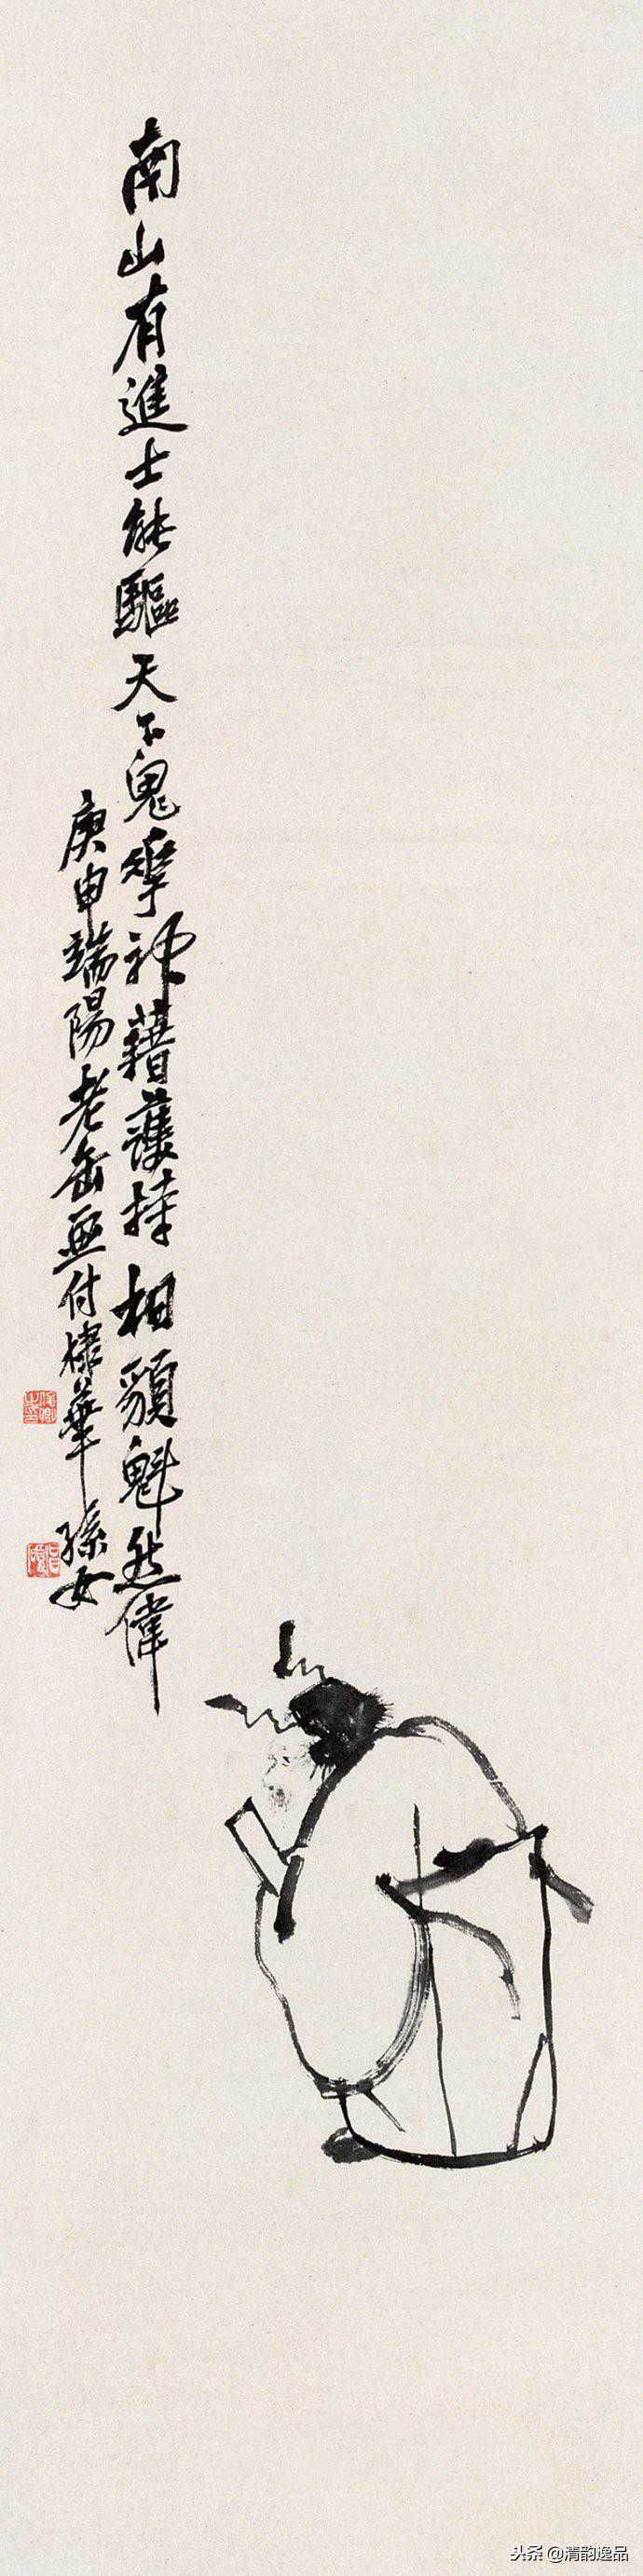 南山有進士能驅天下鬼神藉護持相貌魁然偉
庚申端陽老缶畫付棣華孫女
头条 @清韵逸品